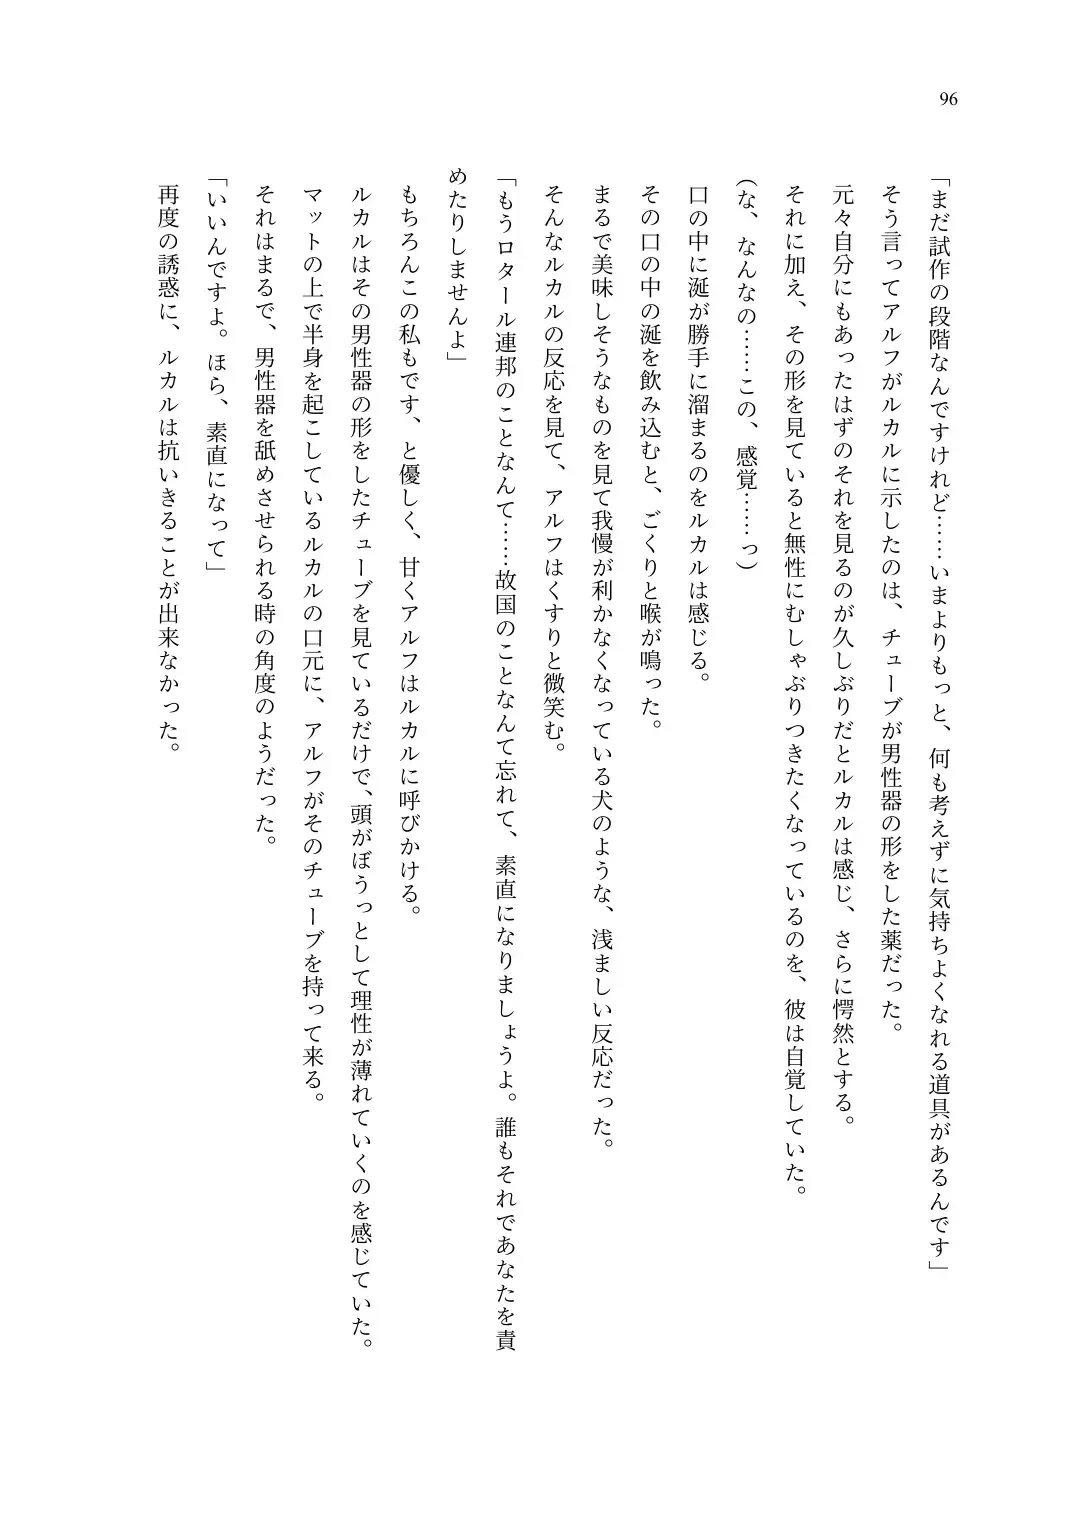 96
「まだ試作の段階なんですけれど……いまよりもっと、何も考えずに気持ちよくなれる道具があるんです」
そう言ってアルフがルカルに示したのは、チューブが男性器の形をした薬だった。
元々自分にもあったはずのそれを見るのが久しぶりだとルカルは感じ、さらに愕然とする。
それに加え、その形を見ていると無性にむしゃぶりつきたくなっているのを、彼は自覚していた。
（な、なんなの……この、感覚……っ）
口の中に涎が勝手に溜まるのをルカルは感じる。
その口の中の涎を飲み込むと、ごくりと喉が鳴った。
まるで美味しそうなものを見て我慢が利かなくなっている犬のような、浅ましい反応だった。
そんなルカルの反応を見て、アルフはくすりと微笑む。
「もうロタール連邦のことなんて……故国のことなんて忘れて、素直になりましょうよ。誰もそれであなたを責
めたりしませんよ」
もちろんこの私もです、と優しく、甘くアルフはルカルに呼びかける。
ルカルはその男性器の形をしたチューブを見ているだけで、頭がぼうっとして理性が薄れていくのを感じていた。
マットの上で半身を起こしているルカルの口元に、アルフがそのチューブを持って来る。
それはまるで、男性器を舐めさせられる時の角度のようだった。
「いいんですよ。ほら、素直になって」
再度の誘惑に、ルカルは抗いきることが出来なかった。